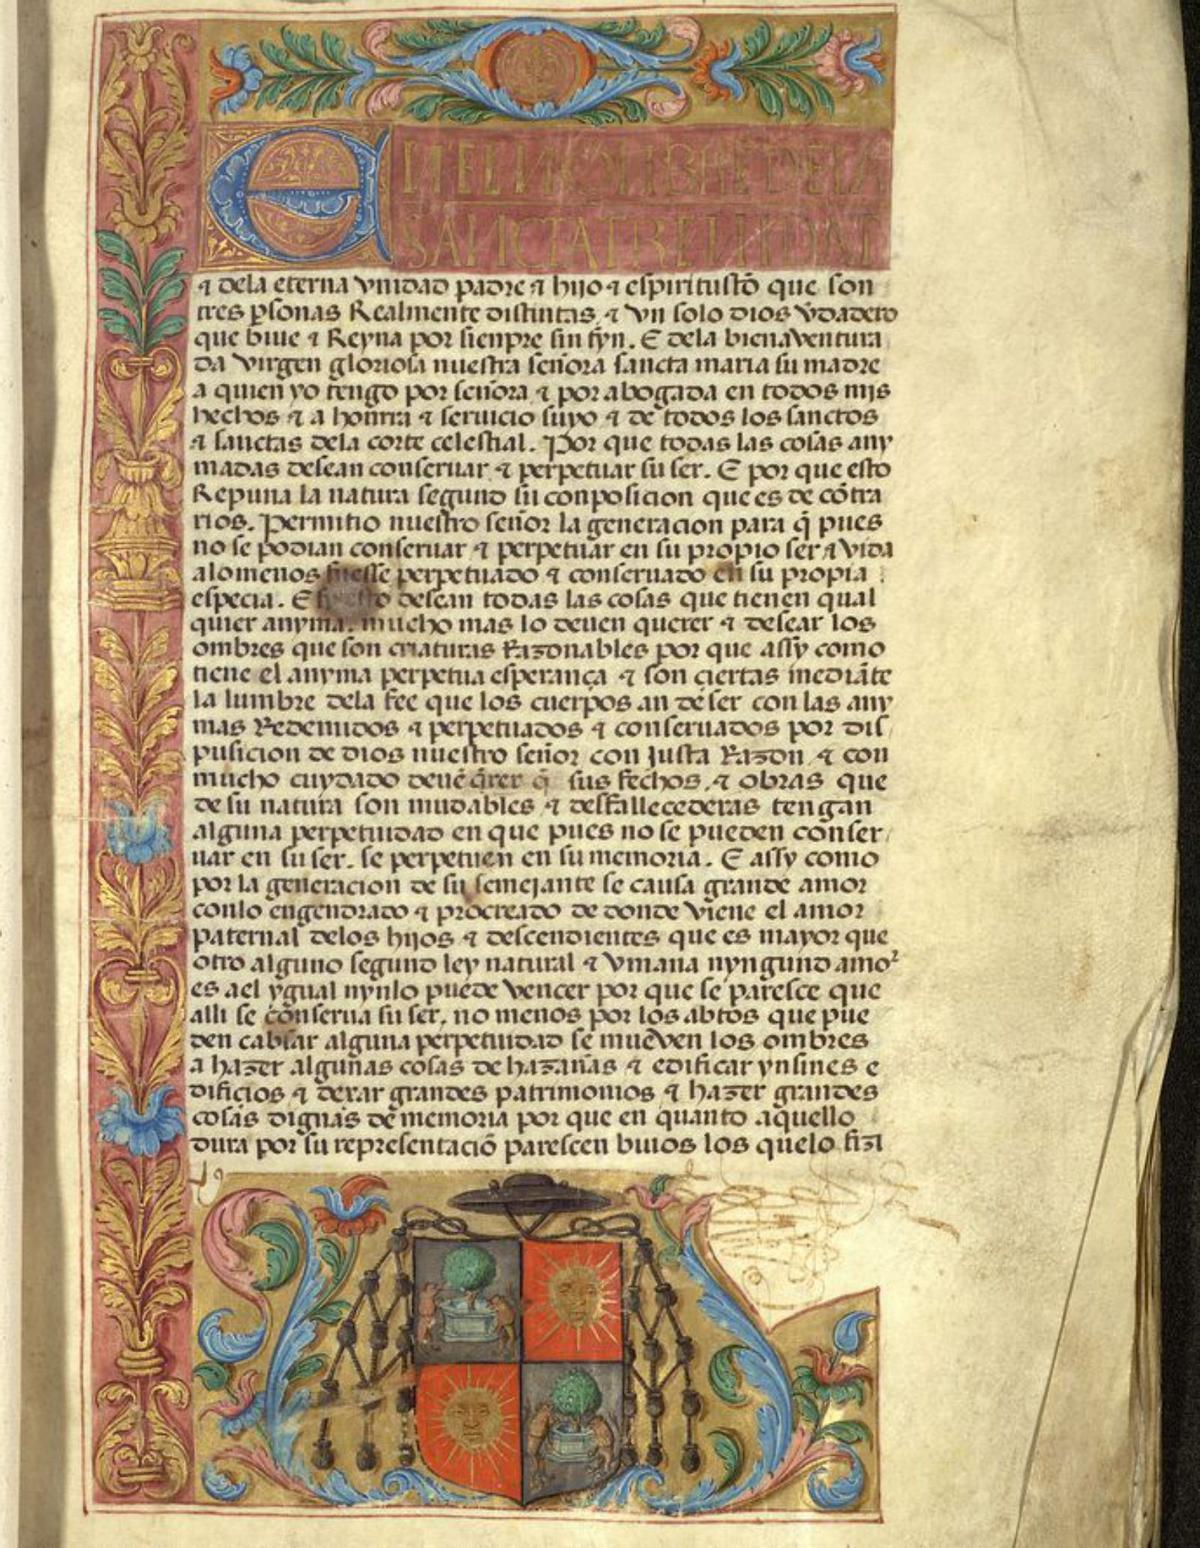 EN EL NOMBRE DE LA
SANCTA TRENIDAD
⁊ dela eterna vnidad padre ⁊ hijo ⁊ espiritustõ que son
tres p̱sonas Realmente distintas ⁊ vn solo dios v̄dadero
que biue ⁊ Reyna por sienpre sin fyn. E dela bienaventura
da virgen gloriosa nuestra señora sancta maria su madre
a quien yo tengo por señora ⁊ por abogada en todos mis
hechos ⁊ a honrra ⁊ seruicio suyo ⁊ de todos los sanctos
⁊ sanctas dela corte celestial. Por que todas las cosas any
madas desean conseruar ⁊ perpetuar su ser. E por que esto
Repuna la natura segund su conposicion que es de cõtra
rios. Permitio nuestro señor la generacion para q̃ pues
no se podian conseruar ⁊ perpetuar en su propio ser ⁊ vida
alomenos fuesse perpetuado ⁊ conseruado en su propia
especia. E desean todas las cosas que tienen qual
quier anyma. mucho mas lo deuen querer ⁊ desear los
ombres que son criaturas Razonables por que assy como
tiene el anyma perpetua esperança ⁊ son çiertas mediãte
la lumbre dela fee que los cuerpos an de ser con las any
mas Redemidos ⁊ perpetuados ⁊ conseruados por dis
pusicion de dios nuestro señor con justa Razon ⁊ con
mucho cuydado deuẽ q̃rer q̃ sus fechos ⁊ obras que
de su natura son mudables ⁊ desfallecederas tengan
alguna perpetuidad en que pues no se pueden conser
uar en su ser. se perpetuen en su memoria. E assy como
por la generacion de su semejante se causa grande amor
conlo engendrado ⁊ procreado de donde viene el amor
paternal delos hijos ⁊ descendientes que es mayor que
otro alguno segund ley natural ⁊ vmana nyngund amor
es ael ygual nynlo puede vencer por que se paresce que
alli se conserua su ser. no menos por los abtos que pue
den cabsar alguna perpetuidad se mueven los ombres
a hazer algunas cosas de hazañas ⁊ edificar ynsines e
dificios ⁊ dexar grandes patrimonios ⁊ hazer grandes
cosas dignas de memoria por que en quanto aquello
dura por su representaciõ parescen biuos los quelo fizi